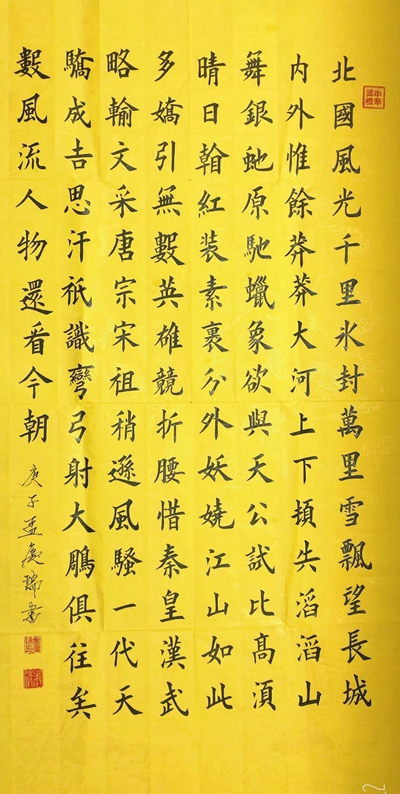 北國風光千里氷封萬里雪飄望長城
内外惟餘莽莽大河上下頓失滔滔山
舞銀虵原馳蠟象欲與天公試比高湏
晴日翰紅装素裹分外妖嬈江山如此
多嬌引無數英雄競折腰惜秦皇漢武
略輸文采唐宗宋祖稍遜風騷一代天
驕成吉思汗祇識彎弓射大鵰俱往矣
數風流人物還看今朝
庚子孟慶瑞書